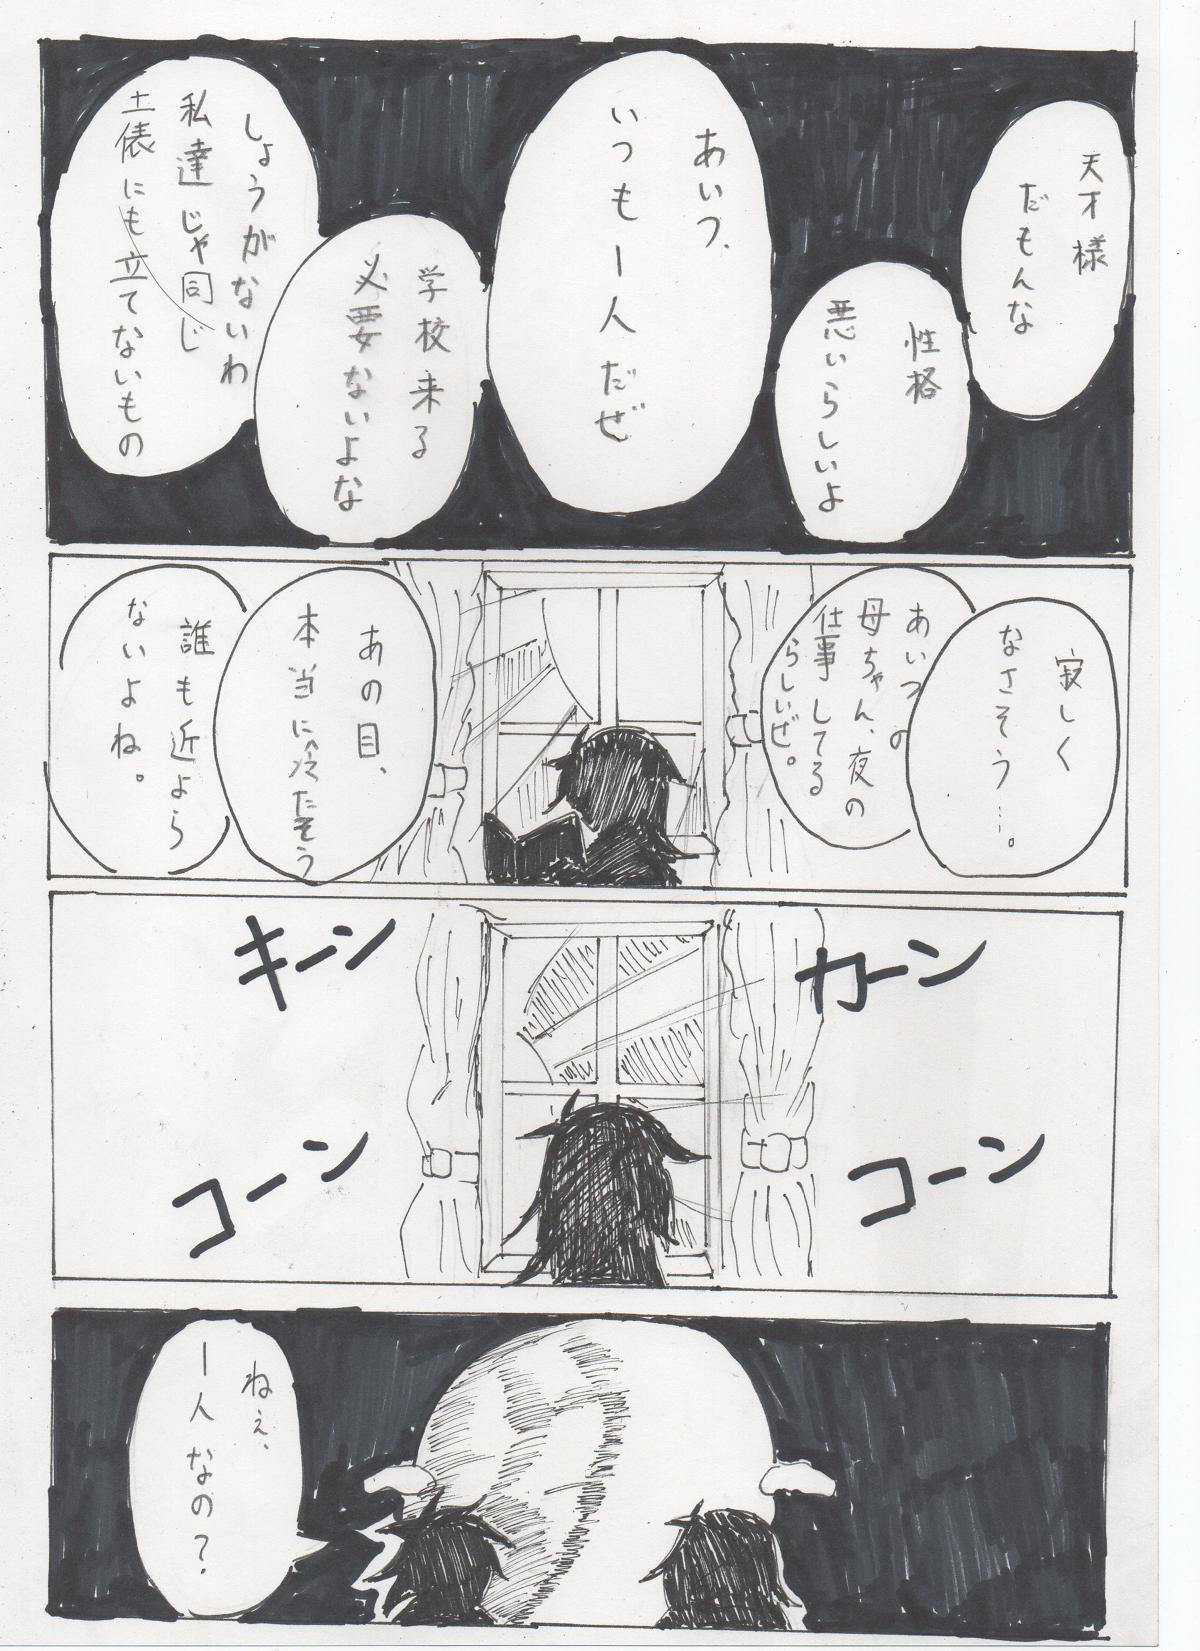 天才様
だもんな
性格
悪いらしいよ
あいつ、
いつも一人だぜ
学校来る
必要ないよな
しょうがないわ
私達じゃ同じ
土俵にも立てないもの
寂しく
なさそう…。
あいつの
母ちゃん、夜の
仕事してる
らしいぜ。
あの目、
本当に冷たそう
誰も近よら
ないよね。
キーン
コーン
カーン
コーン
ねぇ、
一人なの?